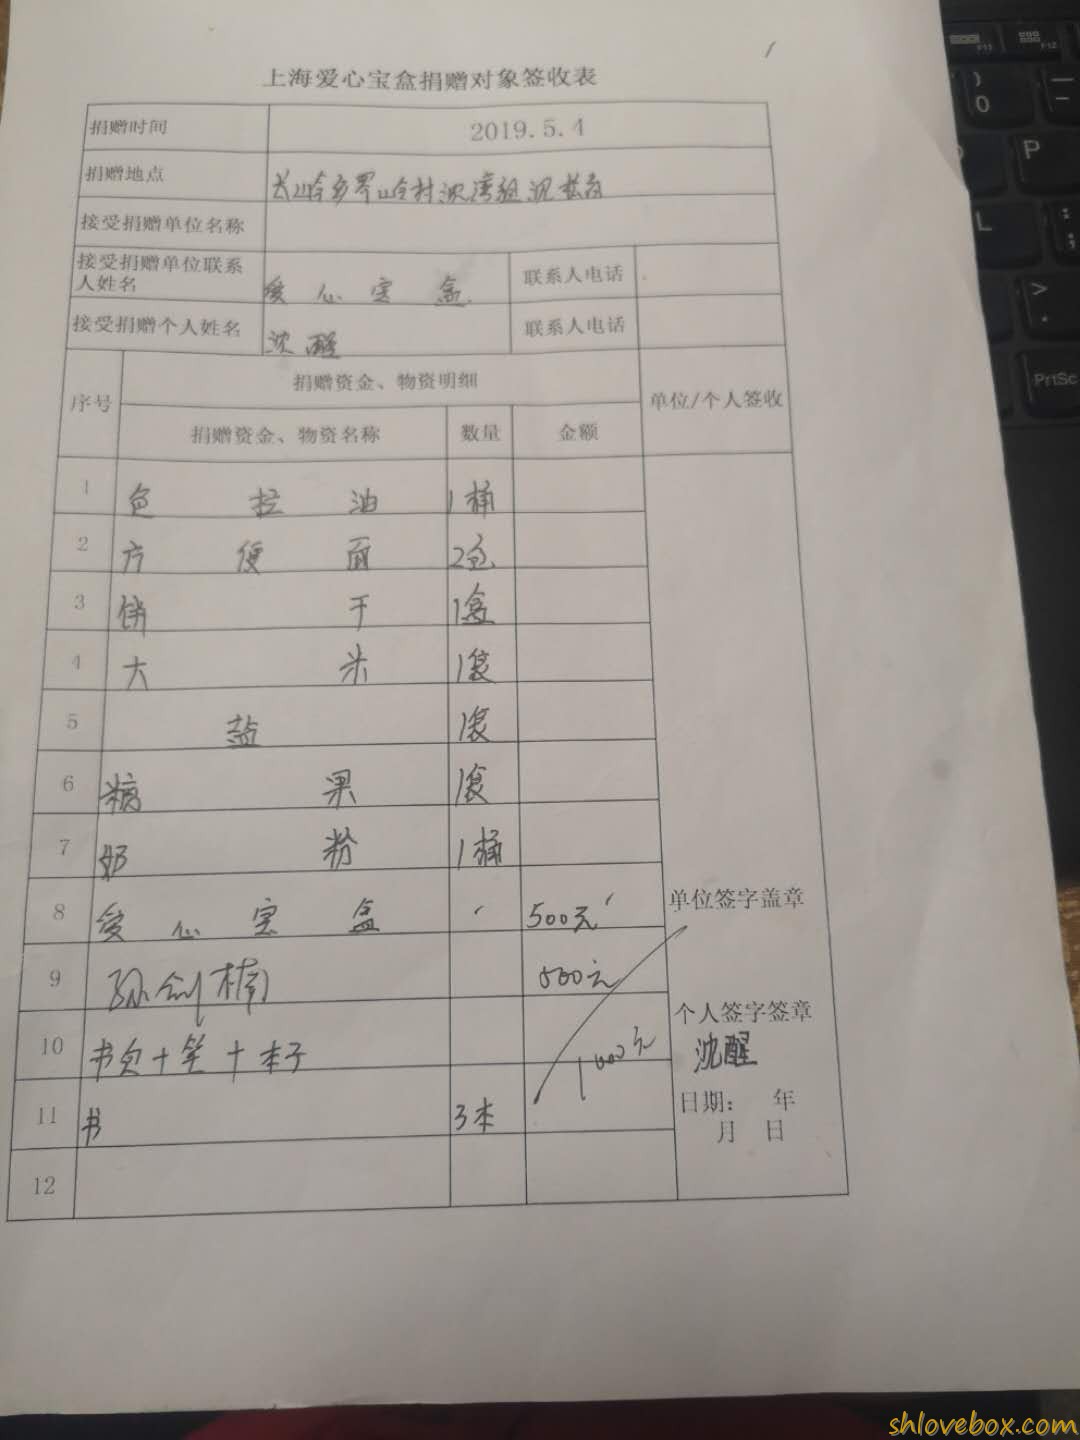 上海爱心宝盒捐赠对象签收表
捐赠时间 2019.5.4
捐赠地点 长岭乡界岭村沈湾组
接受捐赠单位名称
接受捐赠单位联系人姓名 爱心宝盒 联系人电话
接受捐赠个人姓名 沈醒 联系人电话
序号 捐赠资金、物资明细 单位/个人签收
捐赠资金、物资名称 数量 金额
1 色拉油 1桶
2 方便面 2包
3 饼干 1盒
4 大米 1袋
5 盐 1袋
6 糖果 1袋
7 奶粉 1桶
8 爱心宝盒 500元
单位签字盖章
9 孙剑楠 500元
个人签字签章
10 书包+笔+本子 1000元
沈醒
11 书 3本
日期: 年
月 日
12
F11 F12
) 0
P
L
PrtSc
shlovebox.com